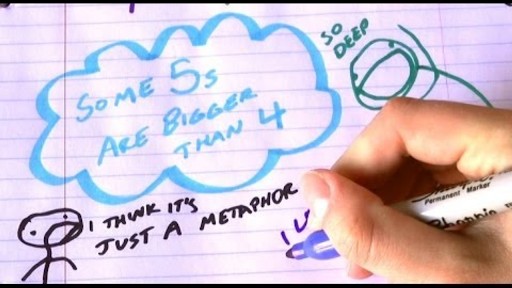 SOME 5s
ARE BIGGER
THAN 4
SO
DEEP
I THINK IT'S
JUST A METAPHOR
I
Permanent Marker